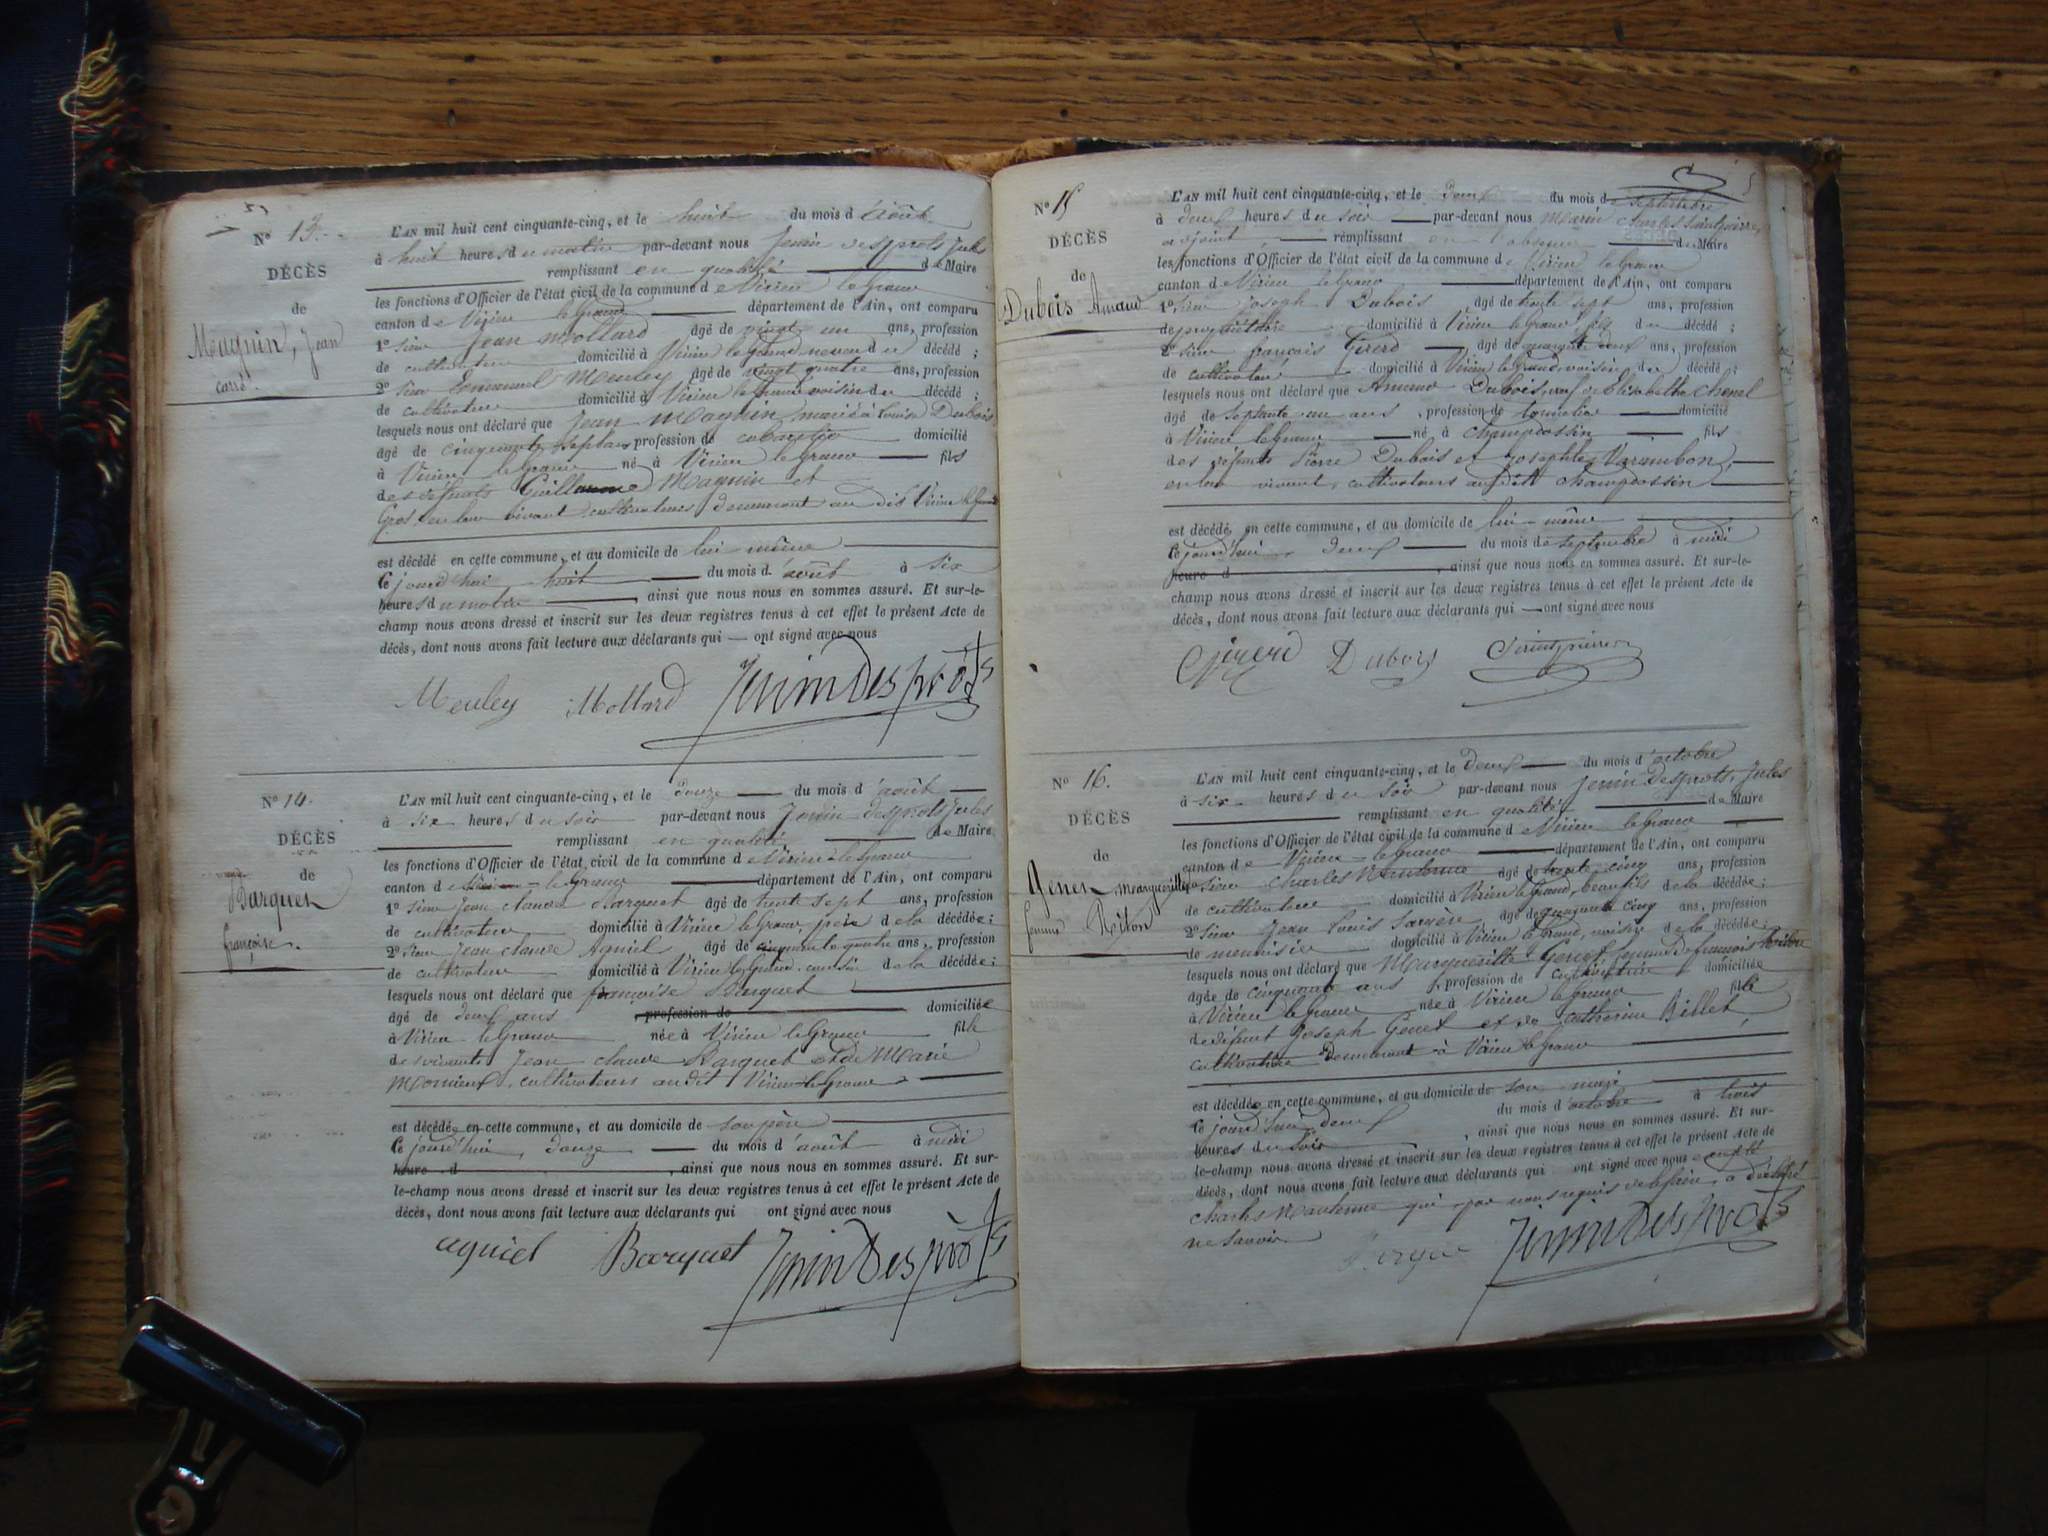 N° 13.
DÉCÈS
de
Magnin, Jean
L'AN mil huit cent cinquante-cinq, et le huit du mois d'août
à huit heures du matin par-devant nous Jenin Desprots Jules
remplissant en qualité de Maire
les fonctions d'Officier de l'état civil de la commune de Virieu le Grand
canton de Virieu le Grand département de l'Ain, ont comparu
1° Sieur Jean Mollard âgé de vingt un ans, profession
de cultivateur domicilié à Virieu le Grand neveu du décédé ;
2° Sieur Emanuel Meuley âgé de vingt quatre ans, profession
de cultivateur domicilié à Virieu le Grand voisin du décédé ;
lesquels nous ont déclaré que Jean Magnin marié à Louise Dubois
âgé de cinquante sept ans, profession de domicilié
à Virieu le Grand né à Virieu le Grand fils
des défunts Guillaume Magnin et
Gros en leur vivant cultivateurs demeurant au dit Virieu le Grand
est décédé en cette commune, et au domicile de lui-même
Ce jourd'hui huit du mois d'août à six
heures du matin, ainsi que nous nous en sommes assuré. Et sur-le-
champ nous avons dressé et inscrit sur les deux registres tenus à cet effet le présent Acte de
décès, dont nous avons fait lecture aux déclarants qui — ont signé avec nous
Meuley Mollard Jenin Desprots
N° 14.
DÉCÈS
de
Barquet
françoise.
L'AN mil huit cent cinquante-cinq, et le douze du mois d'août
à six heures du soir par-devant nous Jenin Desprots Jules
remplissant en qualité de Maire
les fonctions d'Officier de l'état civil de la commune de Virieu-le-Grand
canton de Virieu-le-Grand département de l'Ain, ont comparu
1° Sieur Jean Claude Barquet âgé de trente sept ans, profession
de cultivateur domicilié à Virieu le Grand, père de la décédée ;
2° Sieur Jean Claude Aguiel âgé de cinquante quatre ans, profession
de cultivateur domicilié à Virieu le Grand cousin de la décédée ;
lesquels nous ont déclaré que françoise Barquet
âgé de deux ans profession de domiciliée
à Virieu le Grand née à Virieu le Grand fille
de vivants Jean Claude Barquet et de Marie
cultivateurs audit Virieu-le-Grand
est décédée en cette commune, et au domicile de son père
Ce jourd'hui, douze du mois d'août à midi
heure d, ainsi que nous nous en sommes assuré. Et sur-
le-champ nous avons dressé et inscrit sur les deux registres tenus à cet effet le présent Acte de
décès, dont nous avons fait lecture aux déclarants qui ont signé avec nous
aguiel Barquet Jenin Desprots
N° 15
DÉCÈS
de
Dubois Amand
L'AN mil huit cent cinquante-cinq, et le deux du mois de septembre
à deux heures du soir par-devant nous Marin Charles Saintpierre,
adjoint remplissant en l'absence du Maire
les fonctions d'Officier de l'état civil de la commune de Virieu le Grand
canton de Virieu le Grand département de l'Ain, ont comparu
1° Sieur Joseph Dubois âgé de trente sept ans, profession
de propriétaire domicilié à Virieu le Grand, fils du décédé ;
2° Sieur françois Girerd âgé de quarante deux ans, profession
de cultivateur domicilié à Virieu le Grand, voisin du décédé ;
lesquels nous ont déclaré que Amand Dubois, veuf de Elisabeth Chenel
âgé de septante un ans, profession de tonnelier domicilié
à Virieu le Grand né à Champdossin fils
des défunts Pierre Dubois et Josephte Varambon,
en leur vivant, cultivateurs audit Champdossin
est décédé en cette commune, et au domicile de lui-même
Ce jourd'hui, deux du mois de septembre à midi
heure d, ainsi que nous nous en sommes assuré. Et sur-le-
champ nous avons dressé et inscrit sur les deux registres tenus à cet effet le présent Acte de
décès, dont nous avons fait lecture aux déclarants qui — ont signé avec nous
Girerd Dubois Saintpierre
N° 16.
DÉCÈS
de
Genet Marguerite
femme Riton
L'AN mil huit cent cinquante-cinq, et le deux du mois d'octobre
à six heures du soir par-devant nous Jenin Desprots, Jules
remplissant en qualité de Maire
les fonctions d'Officier de l'état civil de la commune de Virieu le Grand
canton de Virieu-le-Grand département de l'Ain, ont comparu
1° Sieur Charles âgé de trente cinq ans, profession
de cultivateur domicilié à Virieu le Grand, beau fils de la décédée ;
2° Sieur Jean Louis âgé de quarante cinq ans, profession
de menuisier domicilié à Virieu le Grand, voisin de la décédée ;
lesquels nous ont déclaré que Marguerite Genet, femme de françois Riton
âgée de cinquante ans, profession de cultivatrice domiciliée
à Virieu le Grand née à Virieu le Grand fille
de défunt Joseph Genet et de Catherine Billet,
cultivatrice demeurant à Virieu le Grand
est décédée en cette commune, et au domicile de son mari
Ce jourd'hui deux du mois d'octobre à trois
heures du soir, ainsi que nous nous en sommes assuré. Et sur-
le-champ nous avons dressé et inscrit sur les deux registres tenus à cet effet le présent Acte de
décès, dont nous avons fait lecture aux déclarants qui ont signé avec nous excepté
Charles qui par nous requis de le faire, a déclaré
ne savoir.
Jenin Desprots